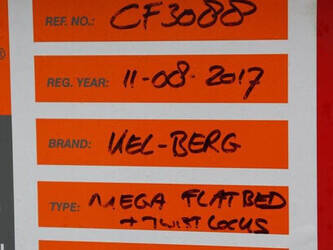 REF. NO.: CF3088
REG. YEAR: 11-08-2017
BRAND: KEL-BERG
TYPE: MEGA FLATBED
+ TWIST LOCKS